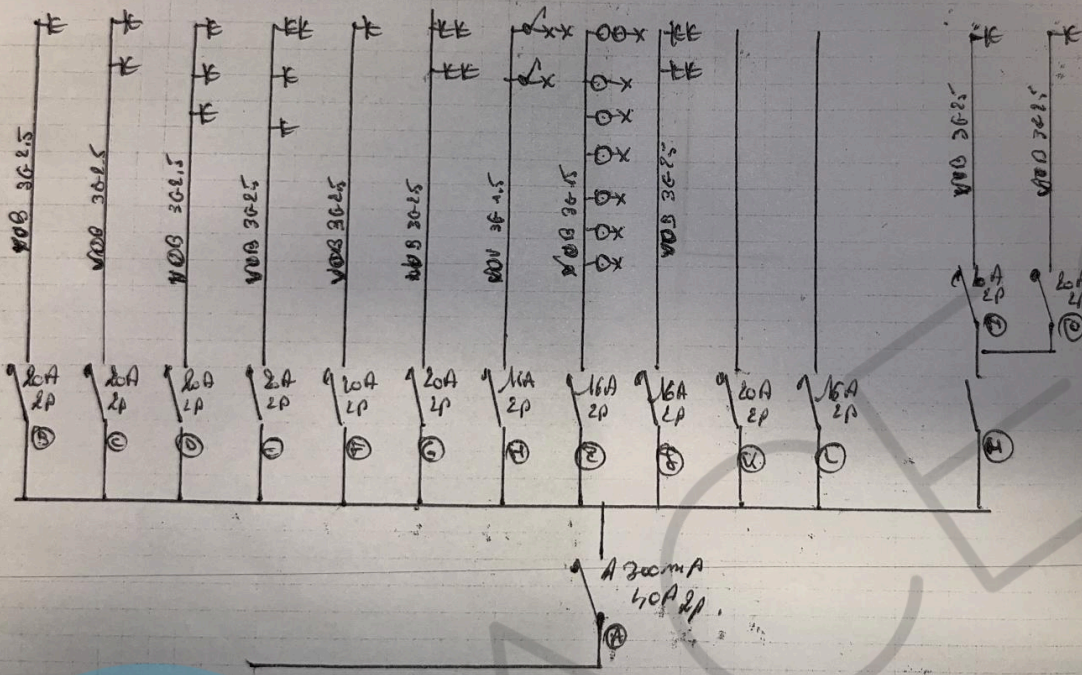 VOB 3G2.5
VOB 3G2.5
VOB 3G2.5
VOB 3G2.5
VOB 3G2.5
VOB 3G2.5
3G 1.5
VOB 3G 1.5
VOB 3G2.5
VOB 3G2.5
VOB 3G2.5
20A
2P
20A
2P
20A
2P
20A
2P
20A
2P
20A
2P
16A
2P
16A
2P
16A
2P
20A
2P
16A
2P
20A
2P
20A
300mA
40A 2P.
A